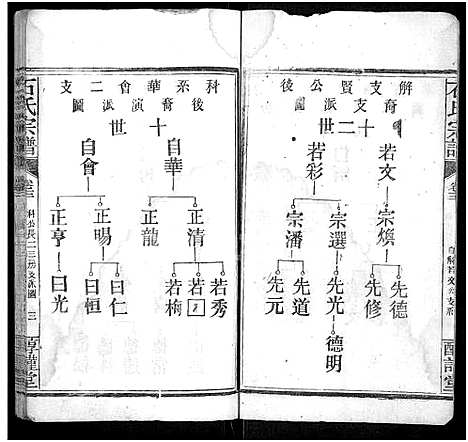 石氏宗譜
卷三
解支賢公後
裔支派圖
十二世
若文
宗煥
先德
先修
若彩
宗選
先光
德明
先道
宗潘
先元
科系華會二支
後裔演派圖
十世
自華
正清
若秀
若楠
正龍
自會
正暘
曰仁
曰恒
正亨
曰光
石氏宗譜
卷三
科公長二三房支派圖
三
惇謹堂